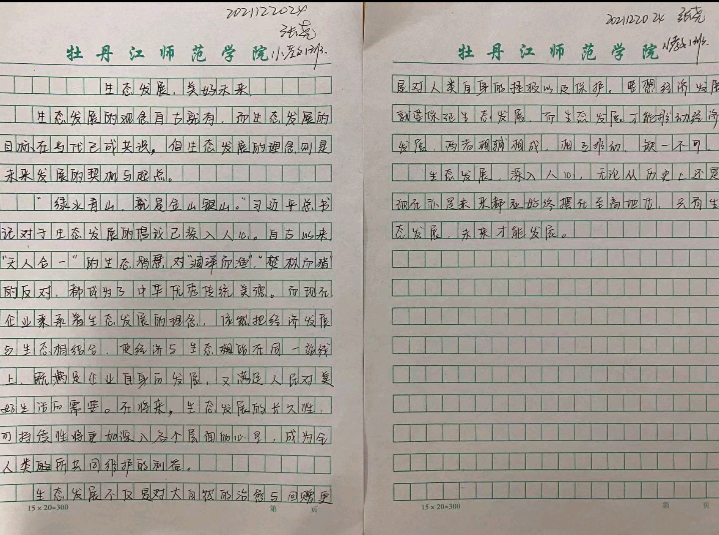 2021122024
张尧
牡丹江师范学院 小教1班
生态发展，美好未来
生态发展的观念自古就有，而生态发展的
目标在当代已成共识，但生态发展的理念则是
未来发展的契机与起点。
“绿水青山，就是金山银山。”习近平总书
记对于生态发展的倡议已深入人心。自古以来
“天人合一”的生态，对“涸泽而渔”“焚林而猎”
的反对，都成为了中华优秀传统美德。而现在
企业秉承着生态发展的理念，应该把经济发展
与生态相结合，使经济与生态在同一路线
上，既满足企业自身的发展，又满足人民对美
好生活的需要。在将来，生态发展的长久性，
可持续性将更加深入各个层面的心里，成为全
人类的所共同维护的利益。
生态发展不仅是对大自然的治愈与回赠更
2021122024 张尧
牡丹江师范学院 小教1班
是对人类自身的拯救以及保护。要想经济发展
就要保证生态发展，而生态发展才能推动经济
发展，两者相辅相成，相互推动，缺一不可。
生态发展，深入人心，无论从历史上还是
现在亦是未来都要始终摆在至高地位，只有生
态发展，未来才能发展。
15×20=300 第 页
15×20=300 第 页